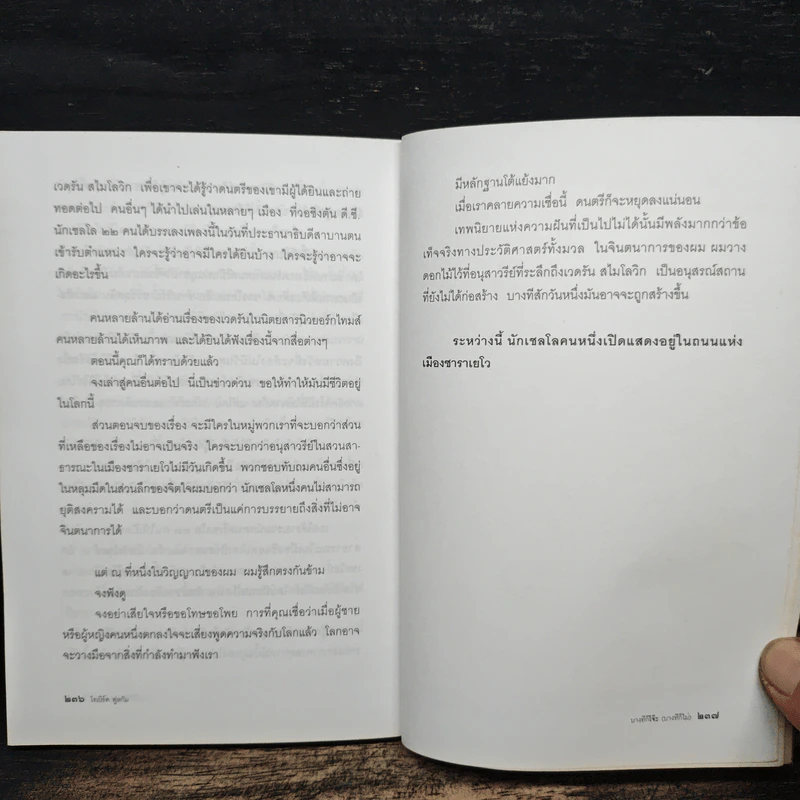 เวดรัน สไมโลวิก เพื่อเขาจะได้รู้ว่าดนตรีของเขามีผู้ได้ยินและถ่าย
ทอดต่อไป คนอื่นๆ ได้นำไปเล่นในหลายๆ เมือง ที่วอชิงตัน ดี.ซี.
นักเซลโล ๒๒ คนได้บรรเลงเพลงนี้ในวันที่ประธานาธิบดีสาบานตน
เข้ารับตำแหน่ง ใครจะรู้ว่าอาจมีใครได้ยินบ้าง ใครจะรู้ว่าอาจจะ
เกิดอะไรขึ้น
คนหลายล้านได้อ่านเรื่องของเวดรันในนิตยสารนิวยอร์กไทมส์
คนหลายล้านได้เห็นภาพ และได้ยินได้ฟังเรื่องนี้จากสื่อต่างๆ
ตอนนี้คุณก็ได้ทราบด้วยแล้ว
จงเล่าสู่คนอื่นต่อไป นี่เป็นข่าวด่วน ขอให้ทำให้มันมีชีวิตอยู่
ในโลกนี้
ส่วนตอนจบของเรื่อง จะมีใครในหมู่พวกเราที่จะบอกว่าส่วน
ที่เหลือของเรื่องไม่อาจเป็นจริง ใครจะบอกว่าอนุสาวรีย์ในสวนสา-
ธารณะในเมืองซาราเยโวไม่มีวันเกิดขึ้น พวกชอบทับถมคนอื่นซึ่งอยู่
ในหลุมมืดในส่วนลึกของจิตใจผมบอกว่า นักเซลโลหนึ่งคนไม่สามารถ
ยุติสงครามได้ และบอกว่าดนตรีเป็นแค่การบรรยายถึงสิ่งที่ไม่อาจ
จินตนาการได้
แต่ ณ ที่หนึ่งในวิญญาณของผม ผมรู้สึกตรงกันข้าม
จงฟังดู
จงอย่าเสียใจหรือขอโทษขอโพย การที่คุณเชื่อว่าเมื่อผู้ชาย
หรือผู้หญิงคนหนึ่งตกลงใจจะเสี่ยงพูดความจริงกับโลกแล้ว โลกอาจ
จะวางมือจากสิ่งที่กำลังทำมาฟังเรา
๒๓๖ โรเบิร์ต ฟูลกัม
มีหลักฐานโต้แย้งมาก
เมื่อเราคลายความเชื่อนี้ ดนตรีก็จะหยุดลงแน่นอน
เทพนิยายแห่งความฝันที่เป็นไปไม่ได้นั้นมีพลังมากกว่าข้อ
เท็จจริงทางประวัติศาสตร์ทั้งมวล ในจินตนาการของผม ผมวาง
ดอกไม้ไว้ที่อนุสาวรีย์ที่ระลึกถึงเวดรัน สไมโลวิก เป็นอนุสรณ์สถาน
ที่ยังไม่ได้ก่อสร้าง บางทีสักวันหนึ่งมันอาจจะถูกสร้างขึ้น
ระหว่างนี้ นักเซลโลคนหนึ่งเปิดแสดงอยู่ในถนนแห่ง
เมืองซาราเยโว
บางทีก็ใช่ (บางทีก็ไม่) ๒๓๗